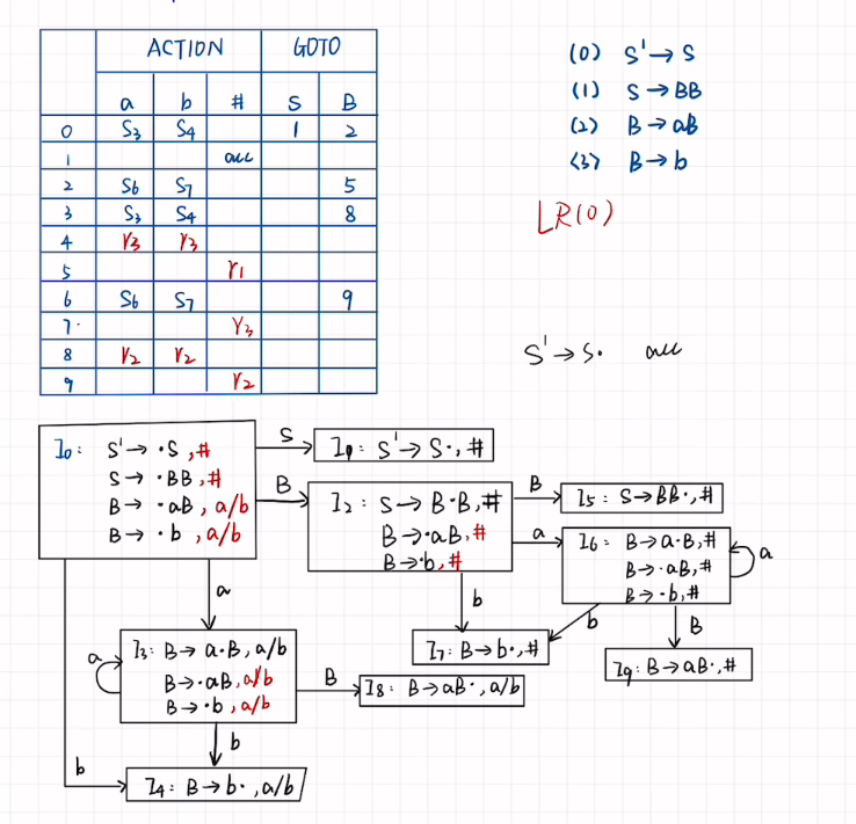 ACTION GOTO
a b # S B
0 S₃ S₄ 1 2
1 acc
2 S₆ S₇ 5
3 S₃ S₄ 8
4 r₃ r₃
5 r₁
6 S₆ S₇ 9
7 r₃
8 r₂ r₂
9 r₂
(0) S'→S
(1) S→BB
(2) B→aB
(3) B→b
LR(0)
S'→S· acc
I₀: S'→·S,#
S→·BB,#
B→·aB,a/b
B→·b,a/b
S
I₁: S'→S·,#
B
I₂: S→B·B,#
B→·aB,#
B→·b,#
B
I₅: S→BB·,#
a
I₆: B→a·B,#
B→·aB,#
B→·b,#
a
a
b
b
B
I₇: B→b·,#
I₉: B→aB·,#
a
I₃: B→a·B,a/b
B→·aB,a/b
B→·b,a/b
B
I₈: B→aB·,a/b
b
b
I₄: B→b·,a/b